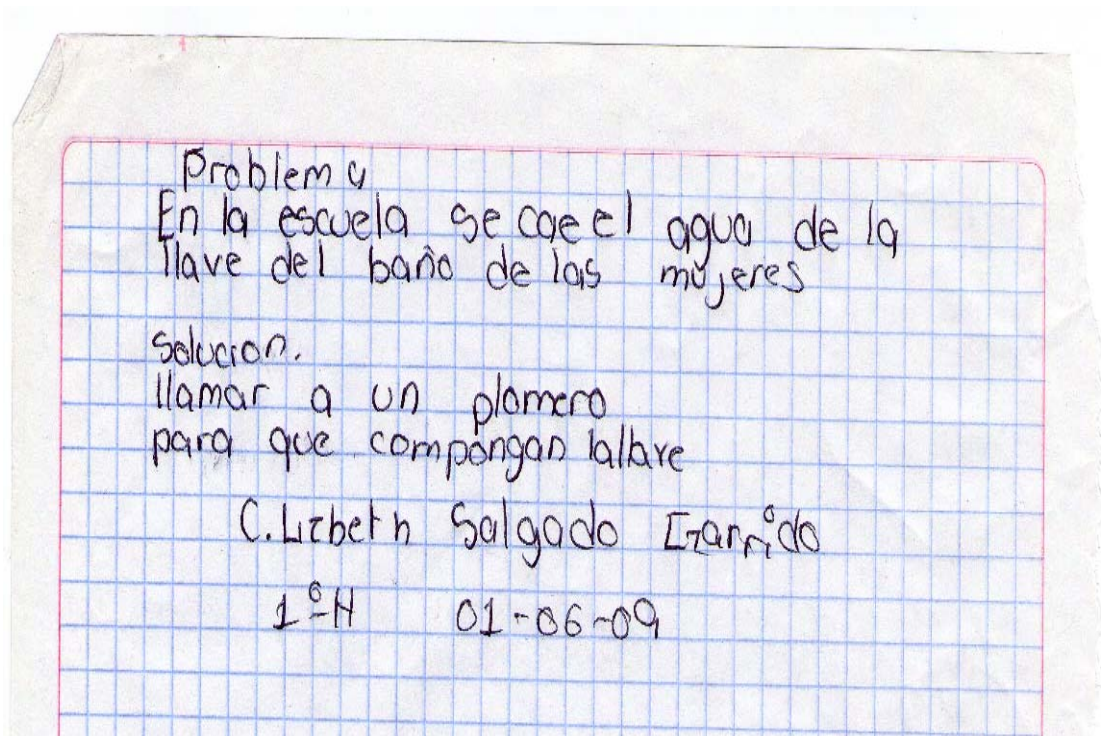 Problema
En la escuela se cae el agua de la
llave del baño de las mujeres
solucion.
llamar a un plomero
para que compongan lallave
C. Lizbeth Salgado Garrido
1º H 01-06-09